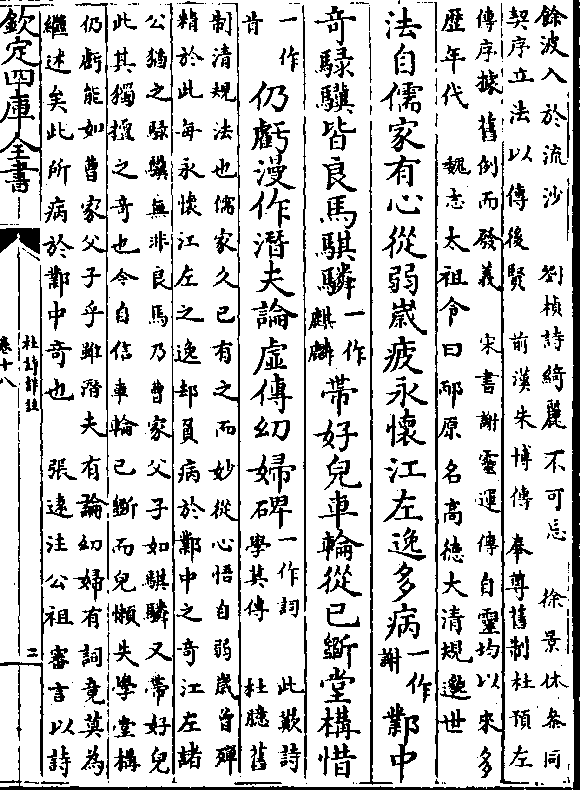 餘波入於流沙　劉楨詩綺麗不可忘　徐景休叅同
契序立法以傳後賢　前漢朱博傳奉尊舊制杜預左
傳序據舊例而發義　宋書謝靈運傳自靈均以來多
歷年代　魏志太祖令曰邴原名高德大清規邈世
法自儒家有心從弱歲疲永懷江左逸多病一作謝鄴中
奇騄驥皆良馬騏驎一作麒麟帶好兒車輪從已斵堂構惜
一作肯仍虧漫作潛夫論虛傳幼婦碑一作詞學其傳　此歎詩杜臆舊
制清規法也儒家久已有之而妙從心悟自弱歲曽殫
精於此每永懷江左之逸却負病於鄴中之奇江左諸
公猶之騄驥無非良馬乃曹家父子如騏驎又帶好兒
此其獨擅之奇也今自信車輪已斵而兒懶失學堂構
仍虧能如曹家父子乎雖潛夫有論幼婦有詞竟莫為
繼述矣此所病於鄴中竒也　張遠注公祖審言以詩
欽定四庫全書
杜詩詳註
卷十八
二